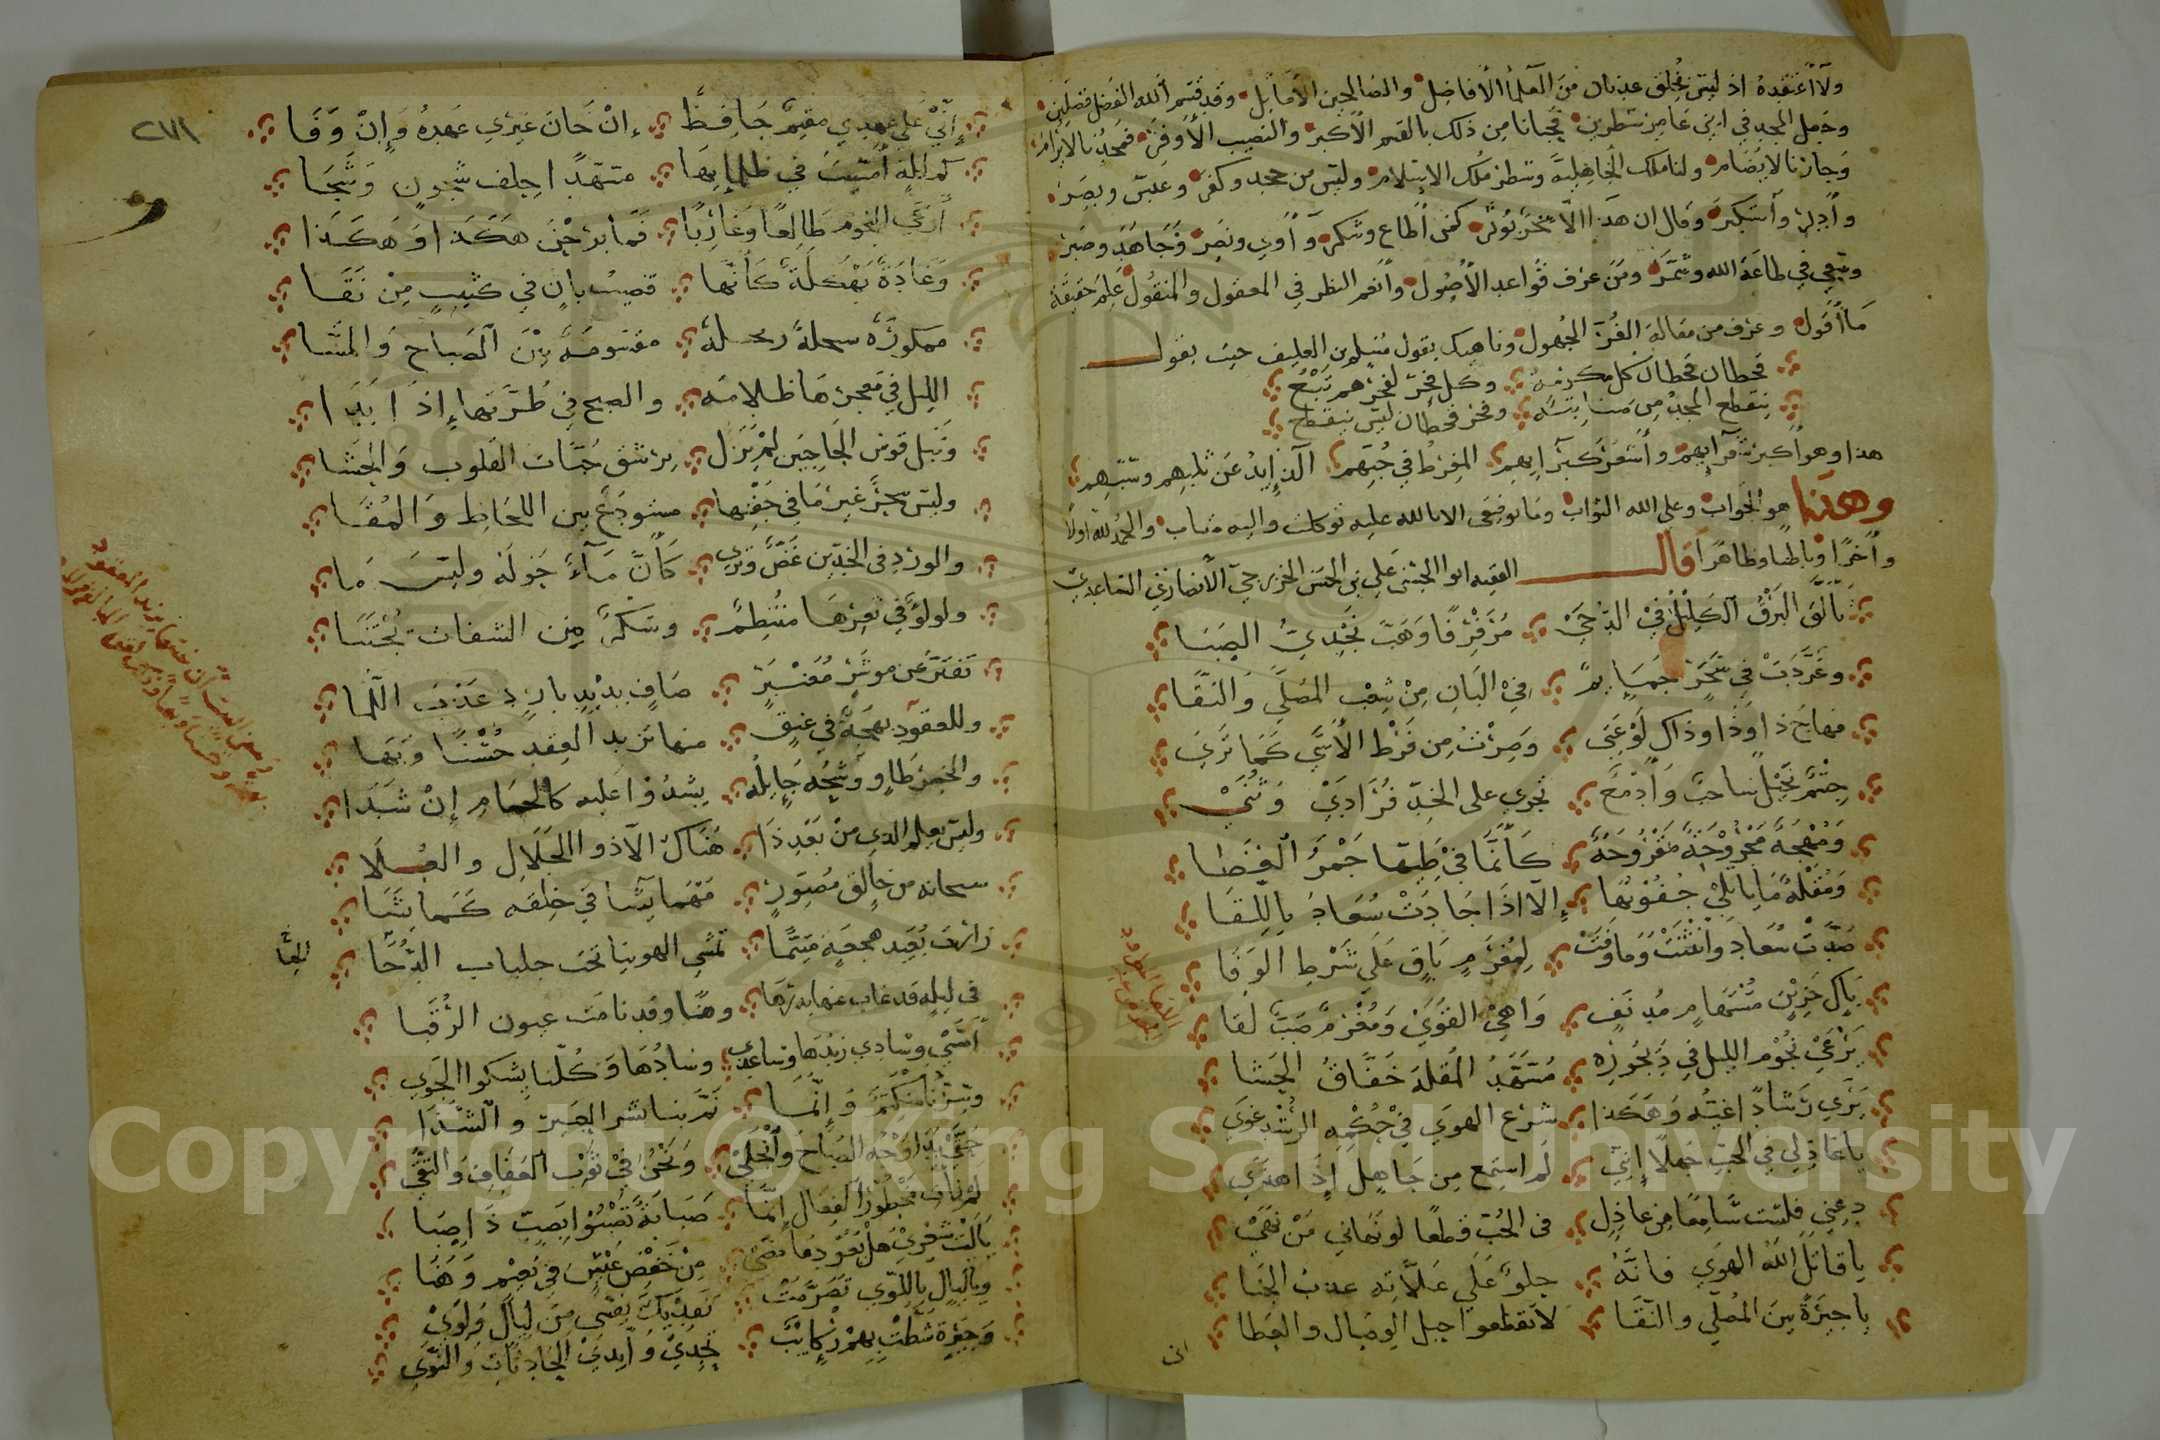 ولا أعتقده اذ ليس يختلف عدنان من العلماء الأفاضل والصالحين الأماثل وقد قسم الله الفضل فصلين
وجعل المجد في ابني عامر شطرين فحبانا من ذلك بالقسم الأكبر والنصيب الأوفر فمجدنا لا يرام
وجارنا لا يضام ولنا ملك الجاهلية وشطر ملك الاسلام وليس من جحد وكفر وعبس وبسر
وأدبر وأستكبر وقال ان هذا الا سحر يؤثر كمن أطاع وشكر وآوى ونصر وجاهد وصبر
وسعى في طاعة الله وشمر ومن عرف قواعد الأصول وأنعم النظر في المعقول والمنقول علم حقيقة
ما أقول وعرف من مقالة الجهول وناهيك بقول مسلم بن العليف حيث يقول
قحطان قحطان كل مكرمة وكل فخر لفخرهم تبع
ينقطع المجد من وفخر قحطان ليس ينقطع
هذا وهو أكبر وأشعر المفرط في حبهم الذائد عن ثلبهم وسبهم
وهذا هو الجواب وعلى الله الثواب وما توفيقي الا بالله عليه توكلت واليه متاب والحمد لله اولا
وآخرا وباطنا وظاهرا قال الفقيه ابو الحسن علي بن الحسن الخزرجي الأنصاري الساعدي
تألق البرق الكليل في الدجى مرفرفا وهب نجدي الصبا
وغردت في سحر حمايم في البان من شعب المصلى والنقا
فهاج ذا وذا وذاك لوعتي وصرت من فرط الأسى كما ترى
جسم نحيل ساحب وأدمع تجري على الخد فرادى وثنى
ومهجة مجروحة مقروحة كأنما في طيها جمر الغضا
ومقلة ما باتلي جفونها إلا اذا جادت سعاد باللقا
صدت سعاد وانثنت وما وفت لمغرم باق على شرط الوفا
باك حزين مستهام مدنف واهي القوى ومغرم صب لقا
يرعى نجوم الليل في ديجوره مسهد المقلة خفاق الحشا
يرى رشادا غيه وهكذا شرع الهوى في حكمه الرشد غوى
يا عاذلي في الحب جهلا إنني لم استمع من جاهل اذا هذى
دعني فلست سامعا من عاذل في الحب قطعا لو نهاني من نهى
يا قاتل الله الهوى فانه حلو على علاته عذب الجنا
يا جيرة بين المصلى والنقا لا تقطعوا حبل الوصال والعطا
انى
٢٧١
إني على عهدي مقيم حافظ ان خان غيري عهده وإن وفا
كم ليلة أمسيت في ظلمائها مسهدا حلف شجون وشجا
أرعى النجوم طالعا وغاربا فما برحن هكذا وهكذا
وغادة بهكلة كأنها قضيب بان في كثيب من نقا
ممكورة سحلة مقسومة بين الصباح والمسا
الليل في معجرها ظلامه والصبح في طرتها إذا بدا
ونبل قوس الحاجبين لم يزل يرشق حبات القلوب والحشا
وليس سحر غير ما في جفنها مستودع بين اللحاظ والمقا
والورد في الخدين غض وترى كأن ماء حوله وليس ما
ولولؤ في ثغرها منتظم وسكر من الشفاة يجتنا
تفتر عن موشر صاف بديد بارد عذب اللما
وللعقود بهجة في عنق منها تزيد العقد حسنا وبها
والخصر طاو ووشحه جائله يشدوا عليه كالحمام إن شدا
وليس يعلم الذي من بعد ذا هناك الا ذو الجلال والعلا
سبحانه من خالق مصور مهما يشا في خلقه كما يشا
زارت بعيد هجعة متيما تمشي الهوينا تحت جلباب الدجا
في ليلة قد غاب عنها بدرها وهنا وقد نامت عيون الرقبا
أمسى وسادي زندها وساعدي وسادها وكلنا يشكوا الجوى
وسرنا منكتم وإنما نم بنا نشر العبير والشذا
حتى بدا وجه الصباح وانجلى ونحن في ثوب العفاف والتقى
لم نأت محظور الفعال إنما صبابة تصبوا بصب ذا صبا
يا ليت شعري هل يعود ما مضى من خفض عيش في نعيم وهنا
ويا ليال باللوى تصرمت نفديك نفسي من ليال ولوى
وجيرة شطت بهم ركائب تحدي وأيدي الحادثات والنوى